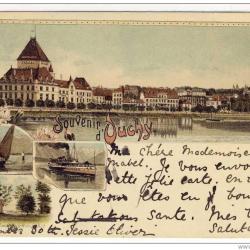 Souvenir
d'Ouchy
Ma Chère Mademoiselle
Mabel. Je vous envoie
cette jolie carte, en
que vous êtes en
Salutations Santé. Mes
30th. Jessie Oliver. Salut